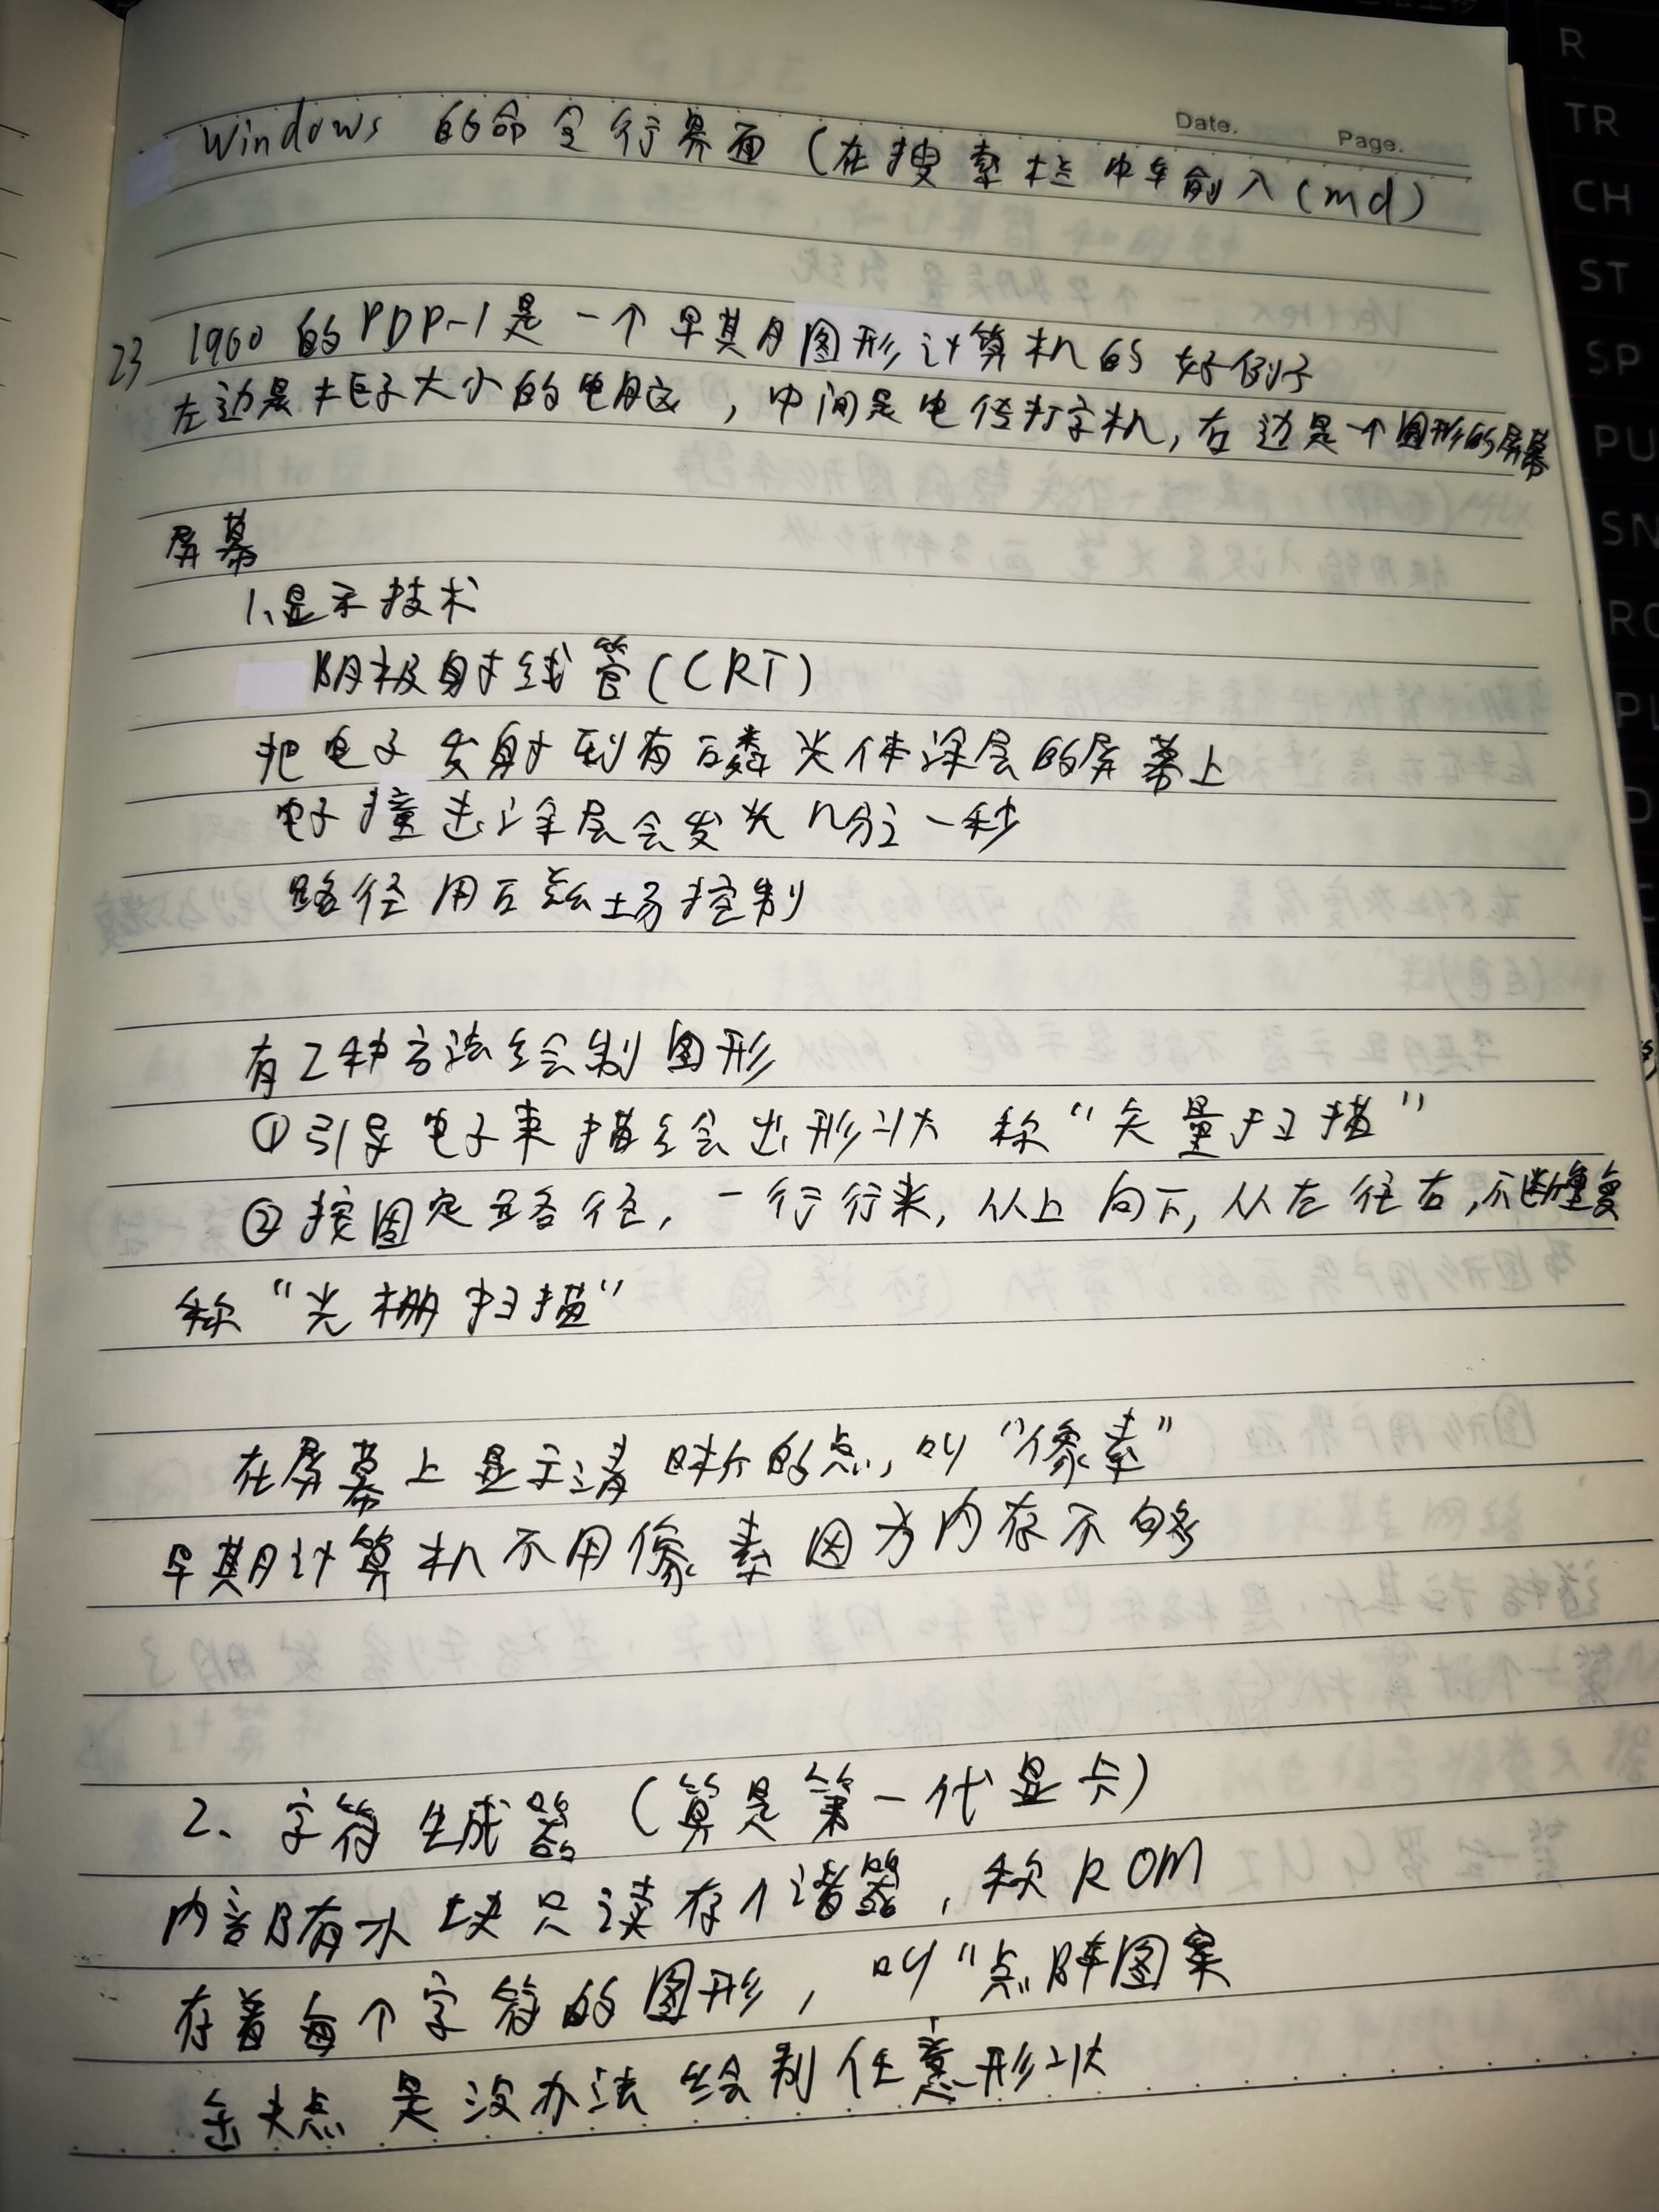 Date. Page.
Windows 的命令行界面 (在搜索栏中输入cmd)
23 1960 的PDP-1是一个早期图形计算机的好例子
左边是柜子大小的电脑, 中间是电传打字机, 右边是一个图形的屏幕
屏幕
1、显示技术
阴极射线管(CRT)
把电子发射到有磷光体涂层的屏幕上
电子撞击涂层会发光几分之一秒
路径用磁场控制
有2种方法绘制图形
①引导电子束描绘出形状 称“矢量扫描”
②按固定路径, 一行行来, 从上向下, 从左往右, 不断重复
称“光栅扫描”
在屏幕上显示清晰的点, 叫“像素”
早期计算机不用像素因为内存不够
2、字符生成器 (算是第一代显卡)
内部有小块只读存储器, 称ROM
存着每个字符的图形, 叫“点阵图案
缺点是没办法绘制任意形状
R
TR
CH
ST
SP
PU
SN